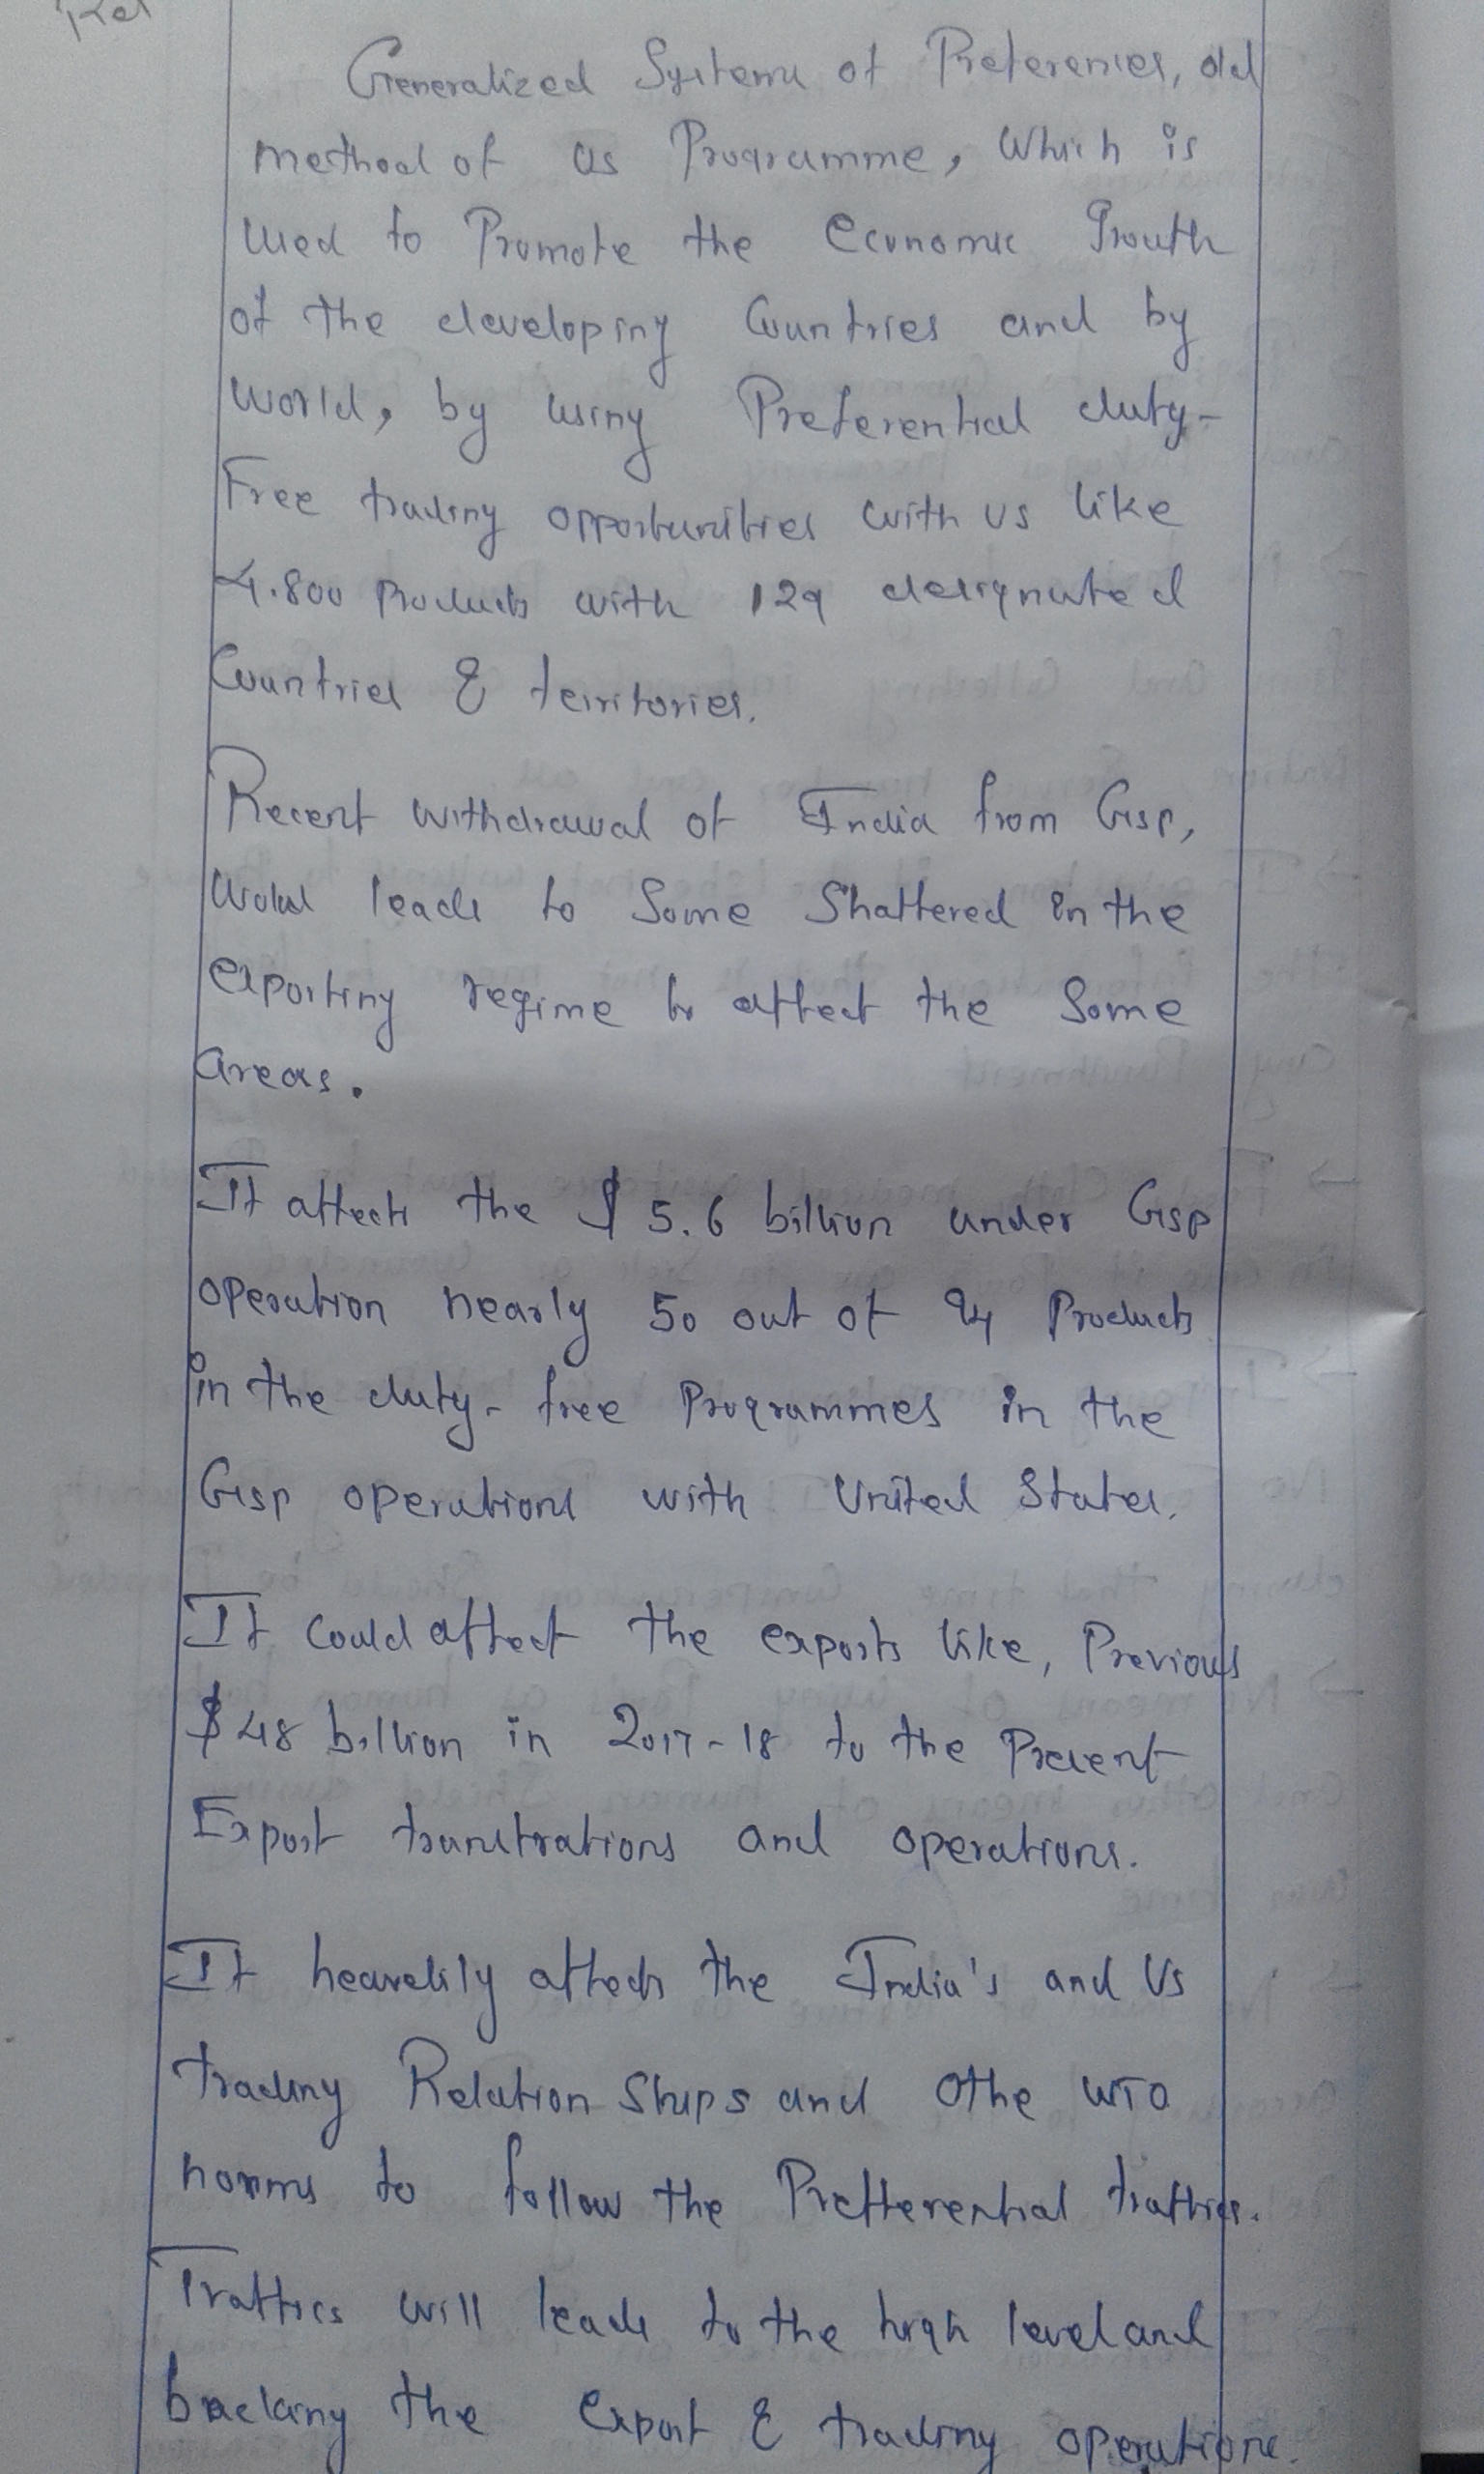 Generalized Systems of Preferences, old
method of US Programme, Which is
used to Promote the economic Growth
of the developing Countries and by
world, by using Preferential duty-
Free trading opportunities with US like
4.800 Products with 129 designated
Countries & territories.
Recent withdrawal of India from GSP,
would leads to Some Shattered in the
exporting regime to affect the Some
areas.
It affects the $ 5.6 billion under GSP
operation nearly 50 out of 94 Products
in the duty-free Programmes in the
GSP operations with United States.
It Could affect the exports like, Previous
$48 billion in 2017-18 to the Present
Export and operations.
It affects the India's and US
trading Relation Ships and Othe WTO
norms to follow the Prefferential traffics.
Traffics will leads to the high level and
backing the export & trading operations.